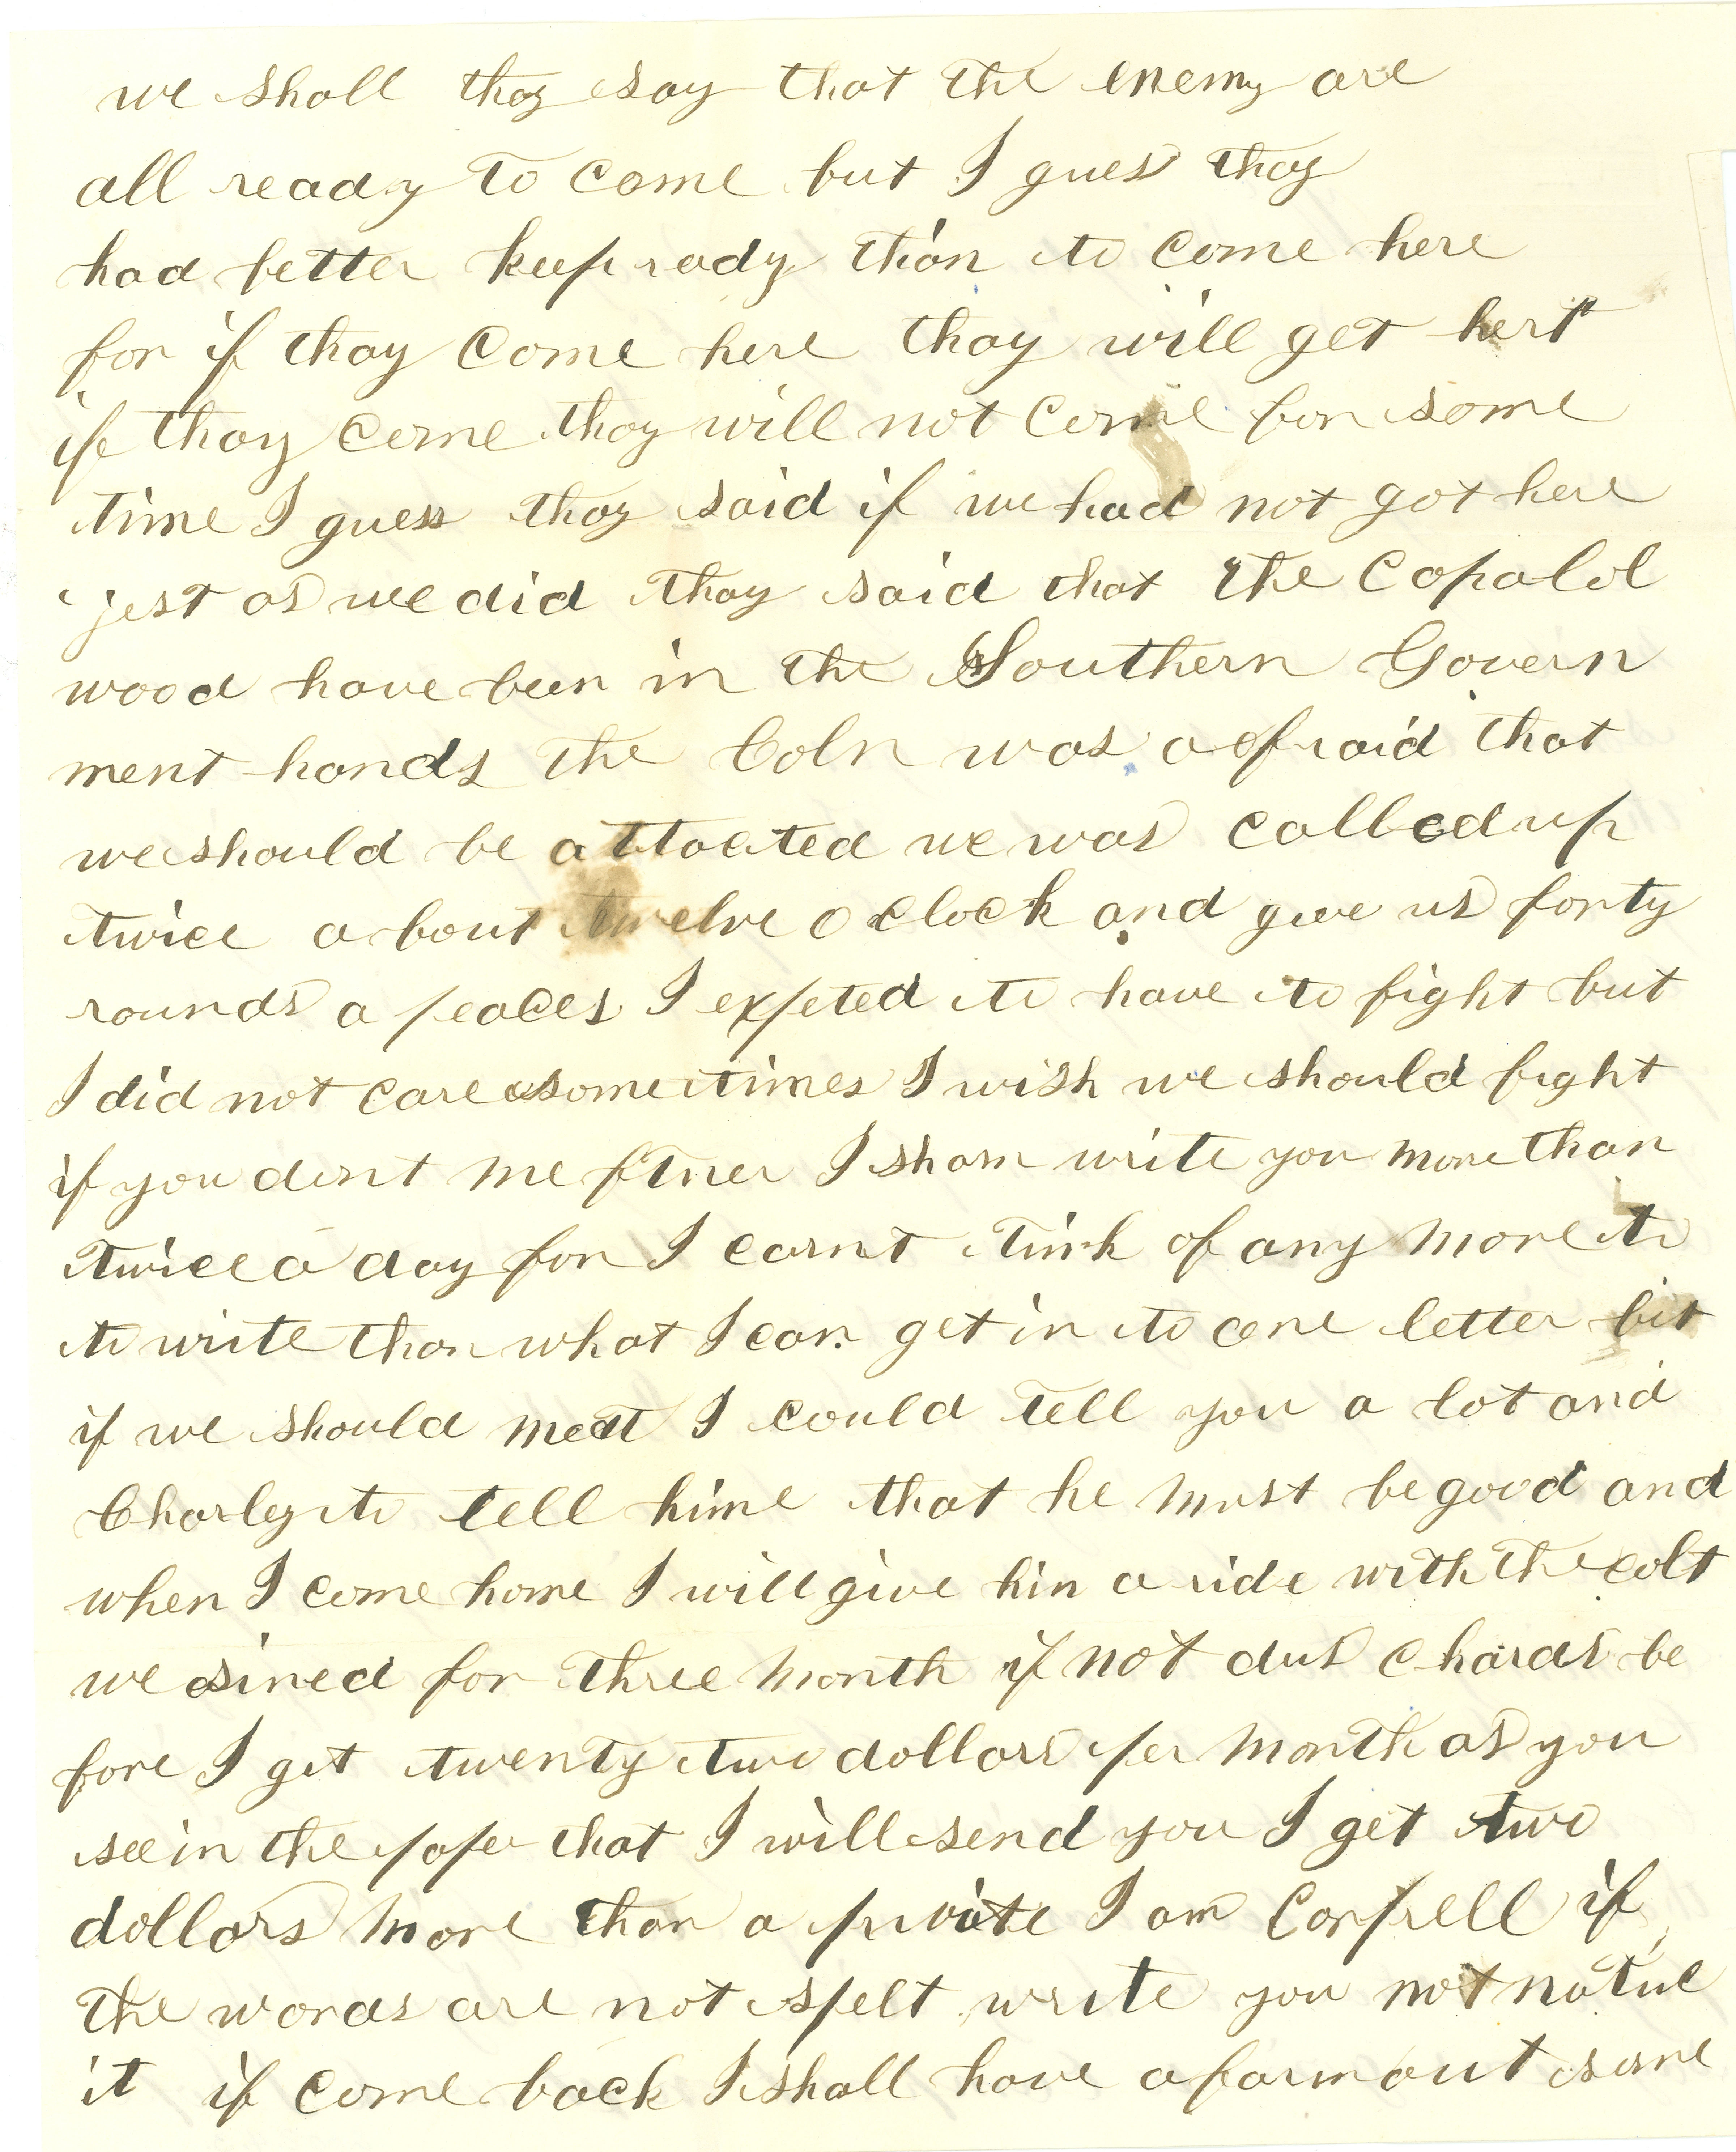 we shall thay say that the enemy are
all ready to come but I guess thay
had better keep rady than to come here
for if thay come here thay will get hert
if thay come thay will not come for some
time I guess thay said if we had not got here
jest as we did thay said that the Copalol
wood have been in the Southern Govern
ment hands the Coln was a afraid that
we should be attacted we was called up
twice a bout twelve o clock and give us forty
rounds a peaces I expeted to have to fight but
I did not care sometimes I wish we should fight
if you dont me I sharn write you more than
twice a day for I carnt tink of any more to
to write than what I can get in to one letter bit
if we should meat I could tell you a lot and
Charley to tell hime that he must be good and
when I come home I will give hin a ride with the colt
we sined for three month if not dus chards be
fore I get twenty two dollars per month as you
see in the paper that I will send you I get two
dollars more than a private I am Corprell if
the words are not spelt write you not
it if come back I shall have a farm out